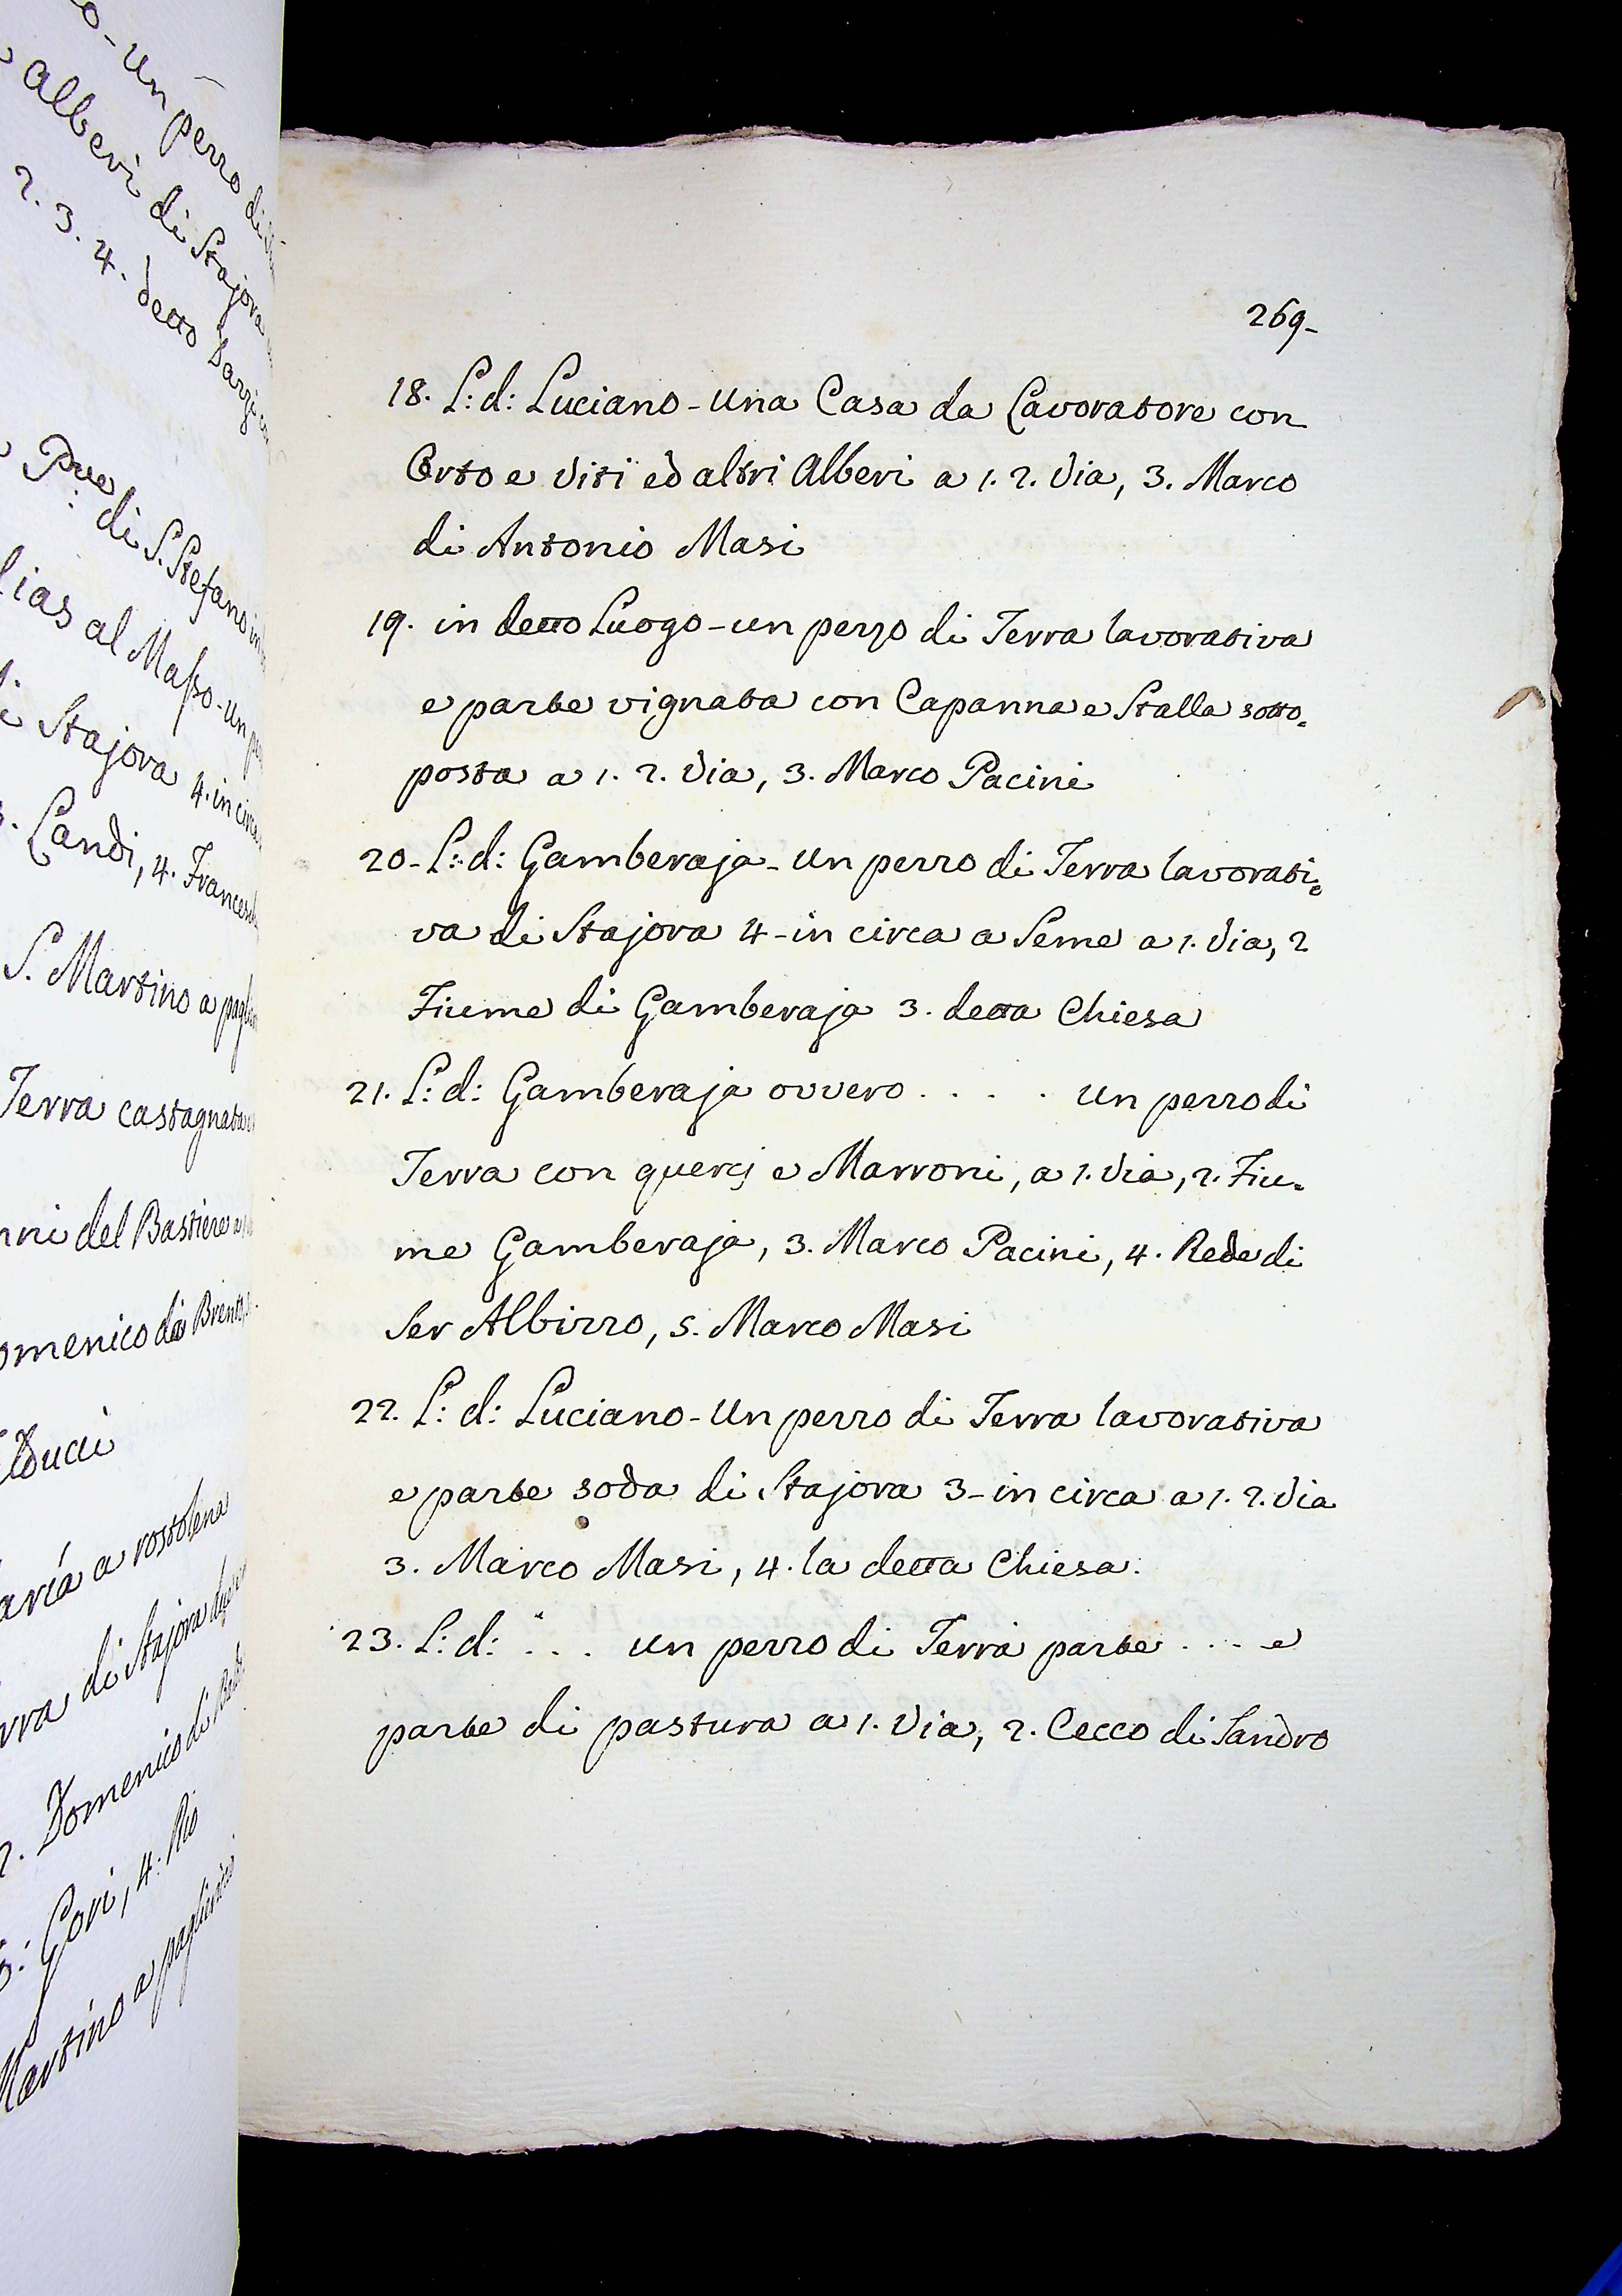 o - un pezzo di
alberi di Stajora
2. 3. 4. detto
Pve: di S. Stefano in
lias al Masso - un
di Stajora 4. in circa
3. Landi, 4. Francesch
S. Martino a pagli
Terra castagnata
nni del Bastiere a
omenico da Brento
aria a rostolena
rra di Stajora
2. Domenico di
Gori, 4. Rio
Martino a
269-
18. L: d: Luciano - una Casa da Lavoratore con
Orto e viti ed altri Alberi a 1. 2. Via, 3. Marco
di Antonio Masi
19. in detto Luogo - un pezzo di Terra lavorativa
e parte vignata con Capanna e Stalla sotto=
posta a 1. 2. Via, 3. Marco Pacini
20 - L: d: Gamberaja - un pezzo di Terra lavorati=
va di Stajora 4 - in circa a Seme a 1. Via, 2
Fiume di Gamberaja 3. detta Chiesa
21. L: d: Gamberaja ovvero . . . . un pezzo di
Terra con quercj e Marroni, a 1. Via, 2. Fiu=
me Gamberaja, 3. Marco Pacini, 4. Rede di
Ser Albizzo, 5. Marco Masi
22. L: d: Luciano - un pezzo di Terra lavorativa
e parte soda di Stajora 3 - in circa a 1. 2. Via
3. Marco Masi, 4. la detta Chiesa.
23. L: d: . . . un pezzo di Terra parte . . . . e
parte di pastura a 1. Via, 2. Cecco di Sandro